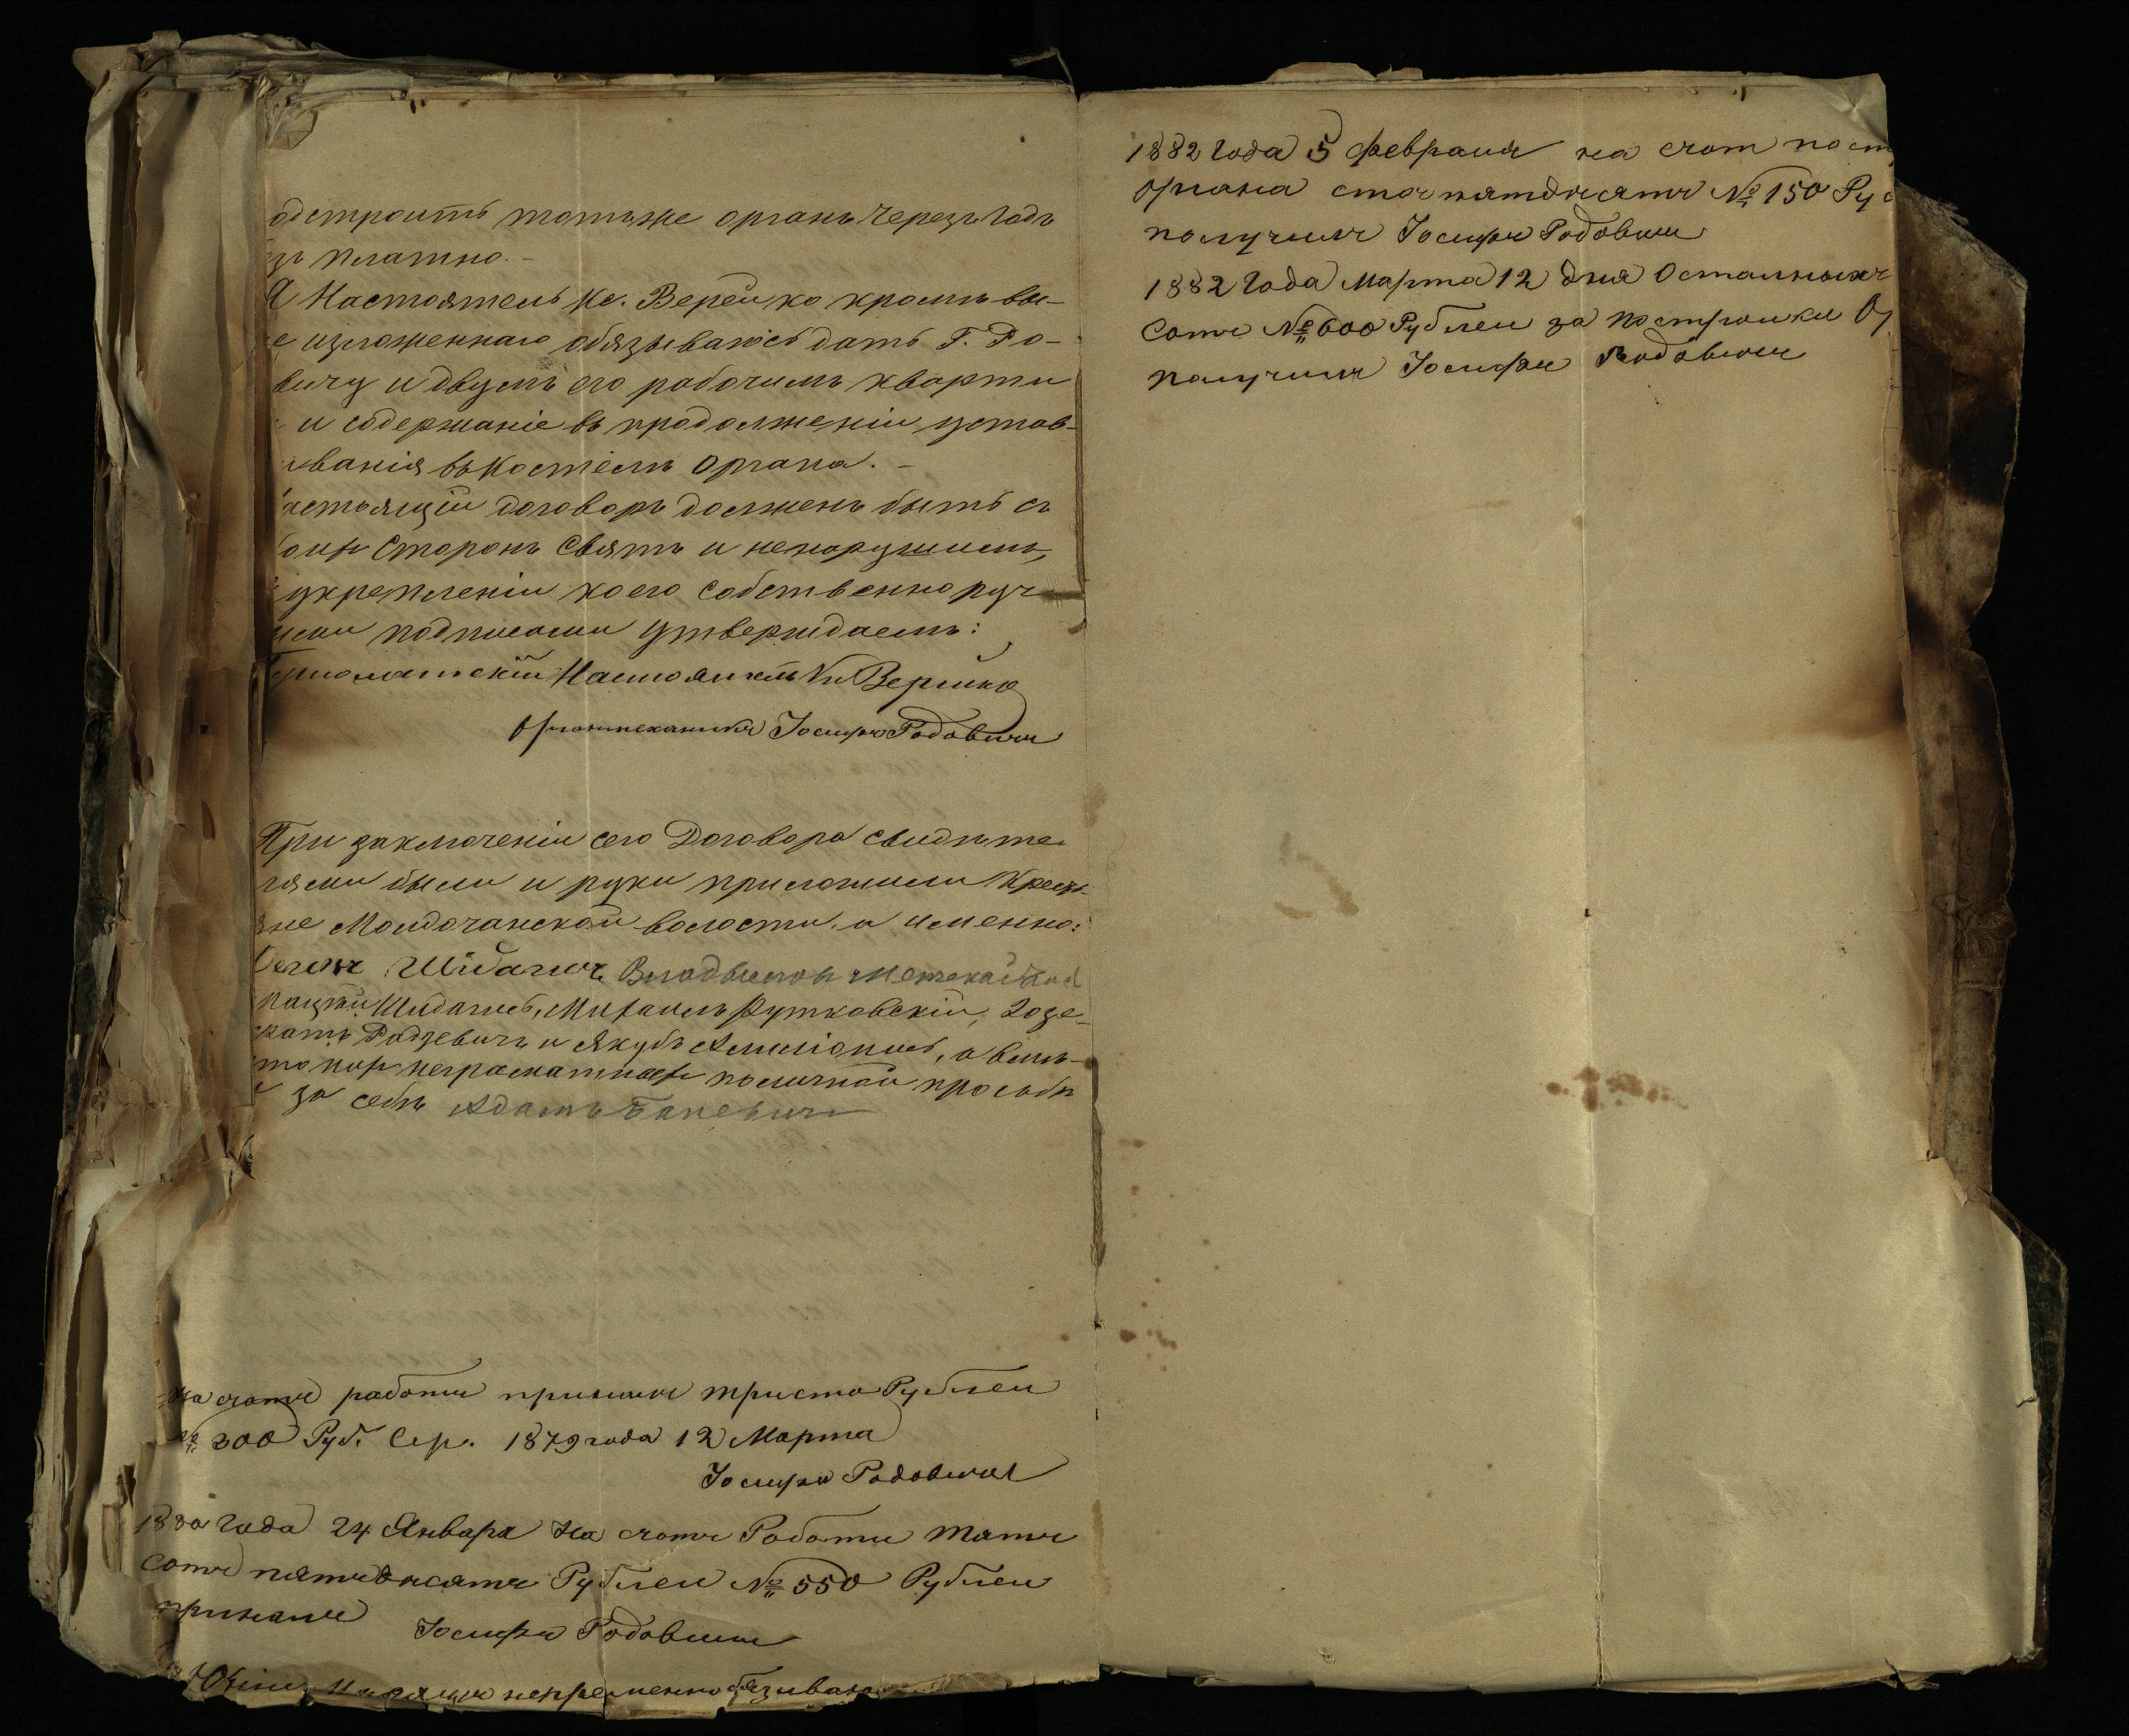 одстроить тотъже органъ черезъ годъ
зъ платно. –
Я Настоятель Кс. Верейко кромѣ вы-
е изложеннаго обязываюсь дать Г. Ро-
вичу и двумъ его рабочимъ кварти
и содержаніе въ продолженіи устав-
иванія въ Костелѣ Органа. –
астоящій договоръ долженъ быть съ
Сторонъ Святъ и ненарушимъ,
укрепленіи коего собственноруч
ными подписами утверждаемъ:
Настоятель Кс Верейко
Органмеханикъ Іосифъ Родовичъ
При заключеніи сего Договора свидѣте-
лями были и руки приложили Кресть-
яне Молдочанской волости, а именно:
Шидагись, Михаилъ Рутковскій, Іозе-
фатъ Радзевичъ и Якубъ а вмѣ-
сто ихъ неграматныхъ по личной прозьбѣ
и за себѣ Адамъ
На счотъ работи принялъ триста Рублей
№ 300 Руб. Сер. 1879 года 12 Марта
Іосифъ Родовичъ
1880 Года 24 Января На счотъ Работи
сотъ пятьдисятъ Рублей № 550 Рублей
принялъ Іосифъ Родовичъ
непременно обязиваю
1882 Года 5 февраля на счот пост
Органа сто пятдисятъ № 150 Руб
получилъ Іосифъ Родовичъ
1882 Года Марта 12 дня Осталныхъ
Сотъ № 600 Рублей за постройки Ор
получилъ Іосифъ Родовичъ